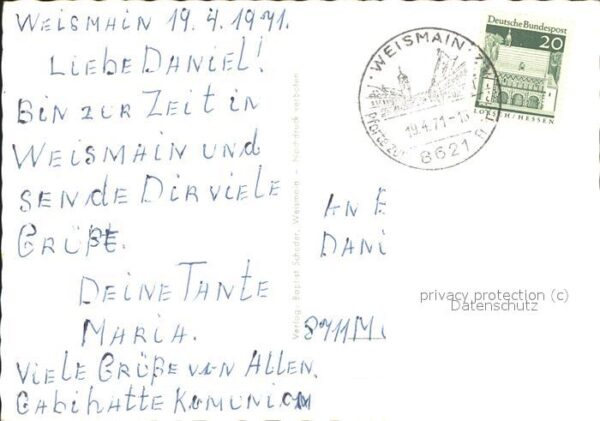 WEISMAIN 19.4.1971.
LIEBE DANIEL!
BIN ZUR ZEIT IN
WEISMAIN UND
SENDE DIR VIELE
GRÜßE.
DEINE TANTE
MARIA.
VIELE GRÜßE VON ALLEN.
GABI HATTE KOMUNION
Verlag: Baptist Schäder, Weismain — Nachdruck verboten
WEISMAIN
19.4.71-
Pforte zu
8621
Deutsche Bundespost
20
LORSCH/HESSEN
AN
DANI
8711 M
privacy protection (c)
Datenschutz